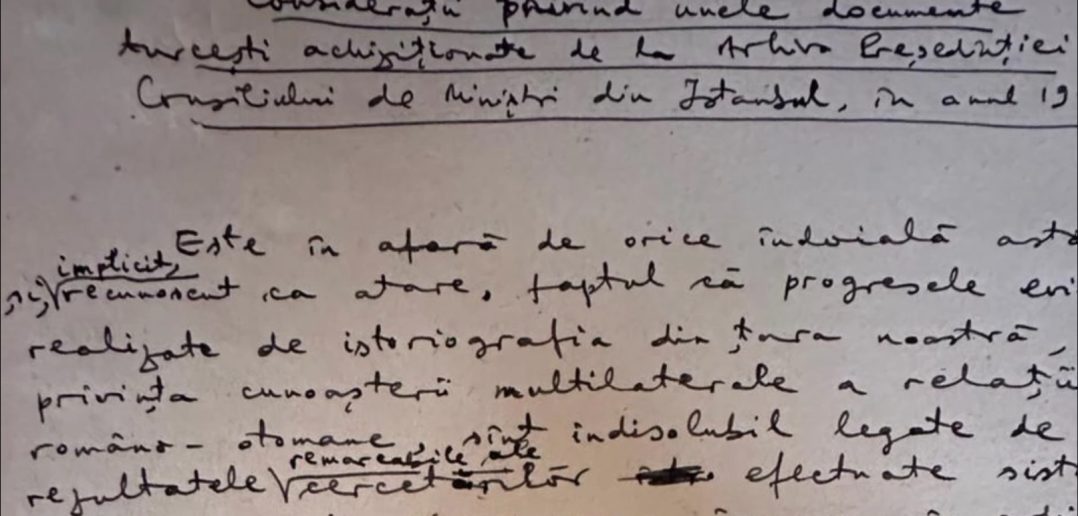 Considerații privind unele documente
turcești achiziționate de la Arhiva Președinției
Consiliului de Miniștri din Istanbul, în anul 19
Este în afară de orice îndoială
implicit,
și, recunoscut ca atare, faptul că progresele
realizate de istoriografia din țara noastră,
privința cunoașterii multilaterale a
româno-otomane, sînt indisolubil legate de
remarcabile ale
rezultatele cercetărilor efectuate